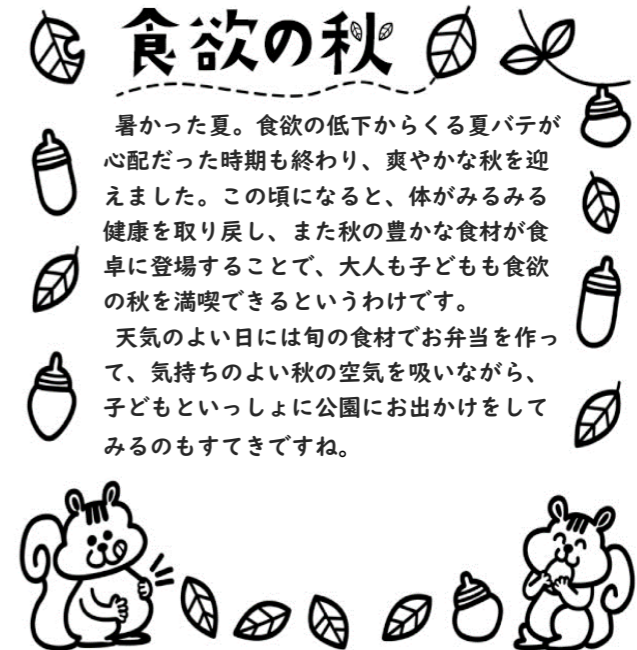 食欲の秋
暑かった夏。食欲の低下からくる夏バテが
心配だった時期も終わり、爽やかな秋を迎
えました。この頃になると、体がみるみる
健康を取り戻し、また秋の豊かな食材が食
卓に登場することで、大人も子どもも食欲
の秋を満喫できるというわけです。
天気のよい日には旬の食材でお弁当を作っ
て、気持ちのよい秋の空気を吸いながら、
子どもといっしょに公園にお出かけをして
みるのもすてきですね。